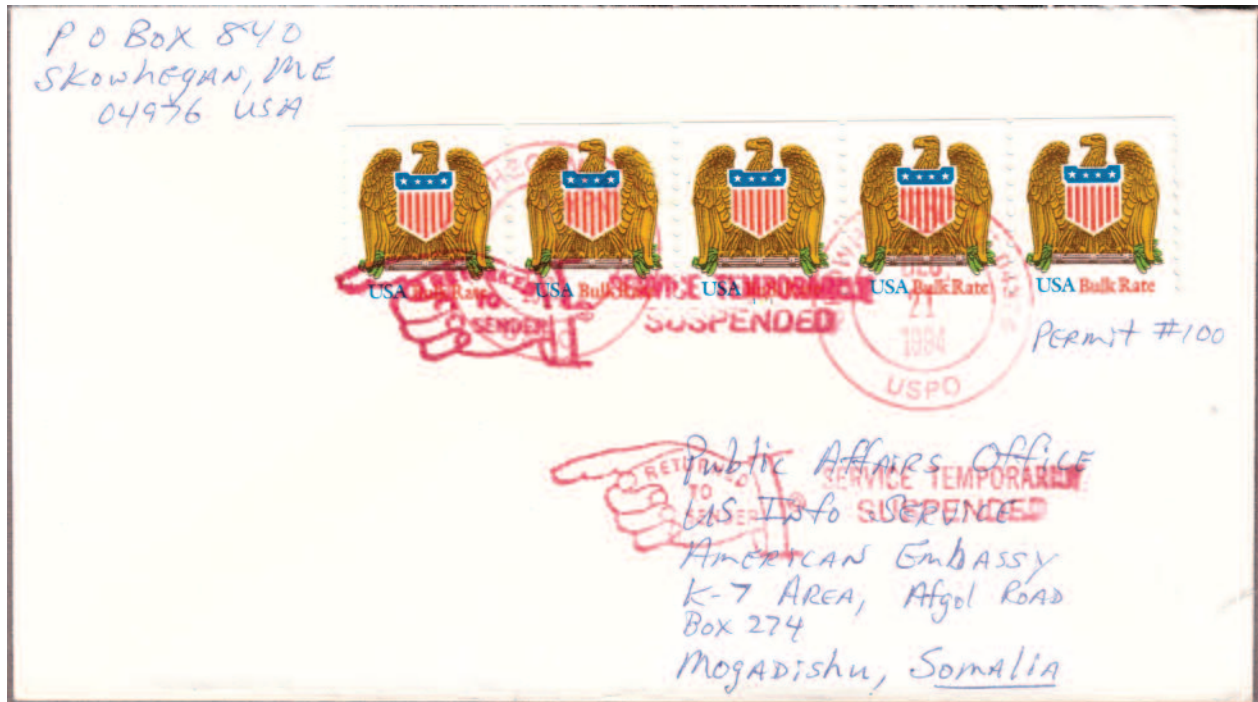 P O Box 840
Skowhegan, ME
04976 USA
USA Bulk Rate
USA Bulk Rate
USA Bulk Rate
USA Bulk Rate
USA Bulk Rate
TO
SENDER
SERVICE TEMPORARILY
SUSPENDED
DEC
21
1994
USPO
Permit #100
RETURNED
TO
SENDER
SERVICE TEMPORARILY
SUSPENDED
Public Affairs Office
US Info Service
American Embassy
K-7 Area, Afgol Road
Box 274
Mogadishu, Somalia